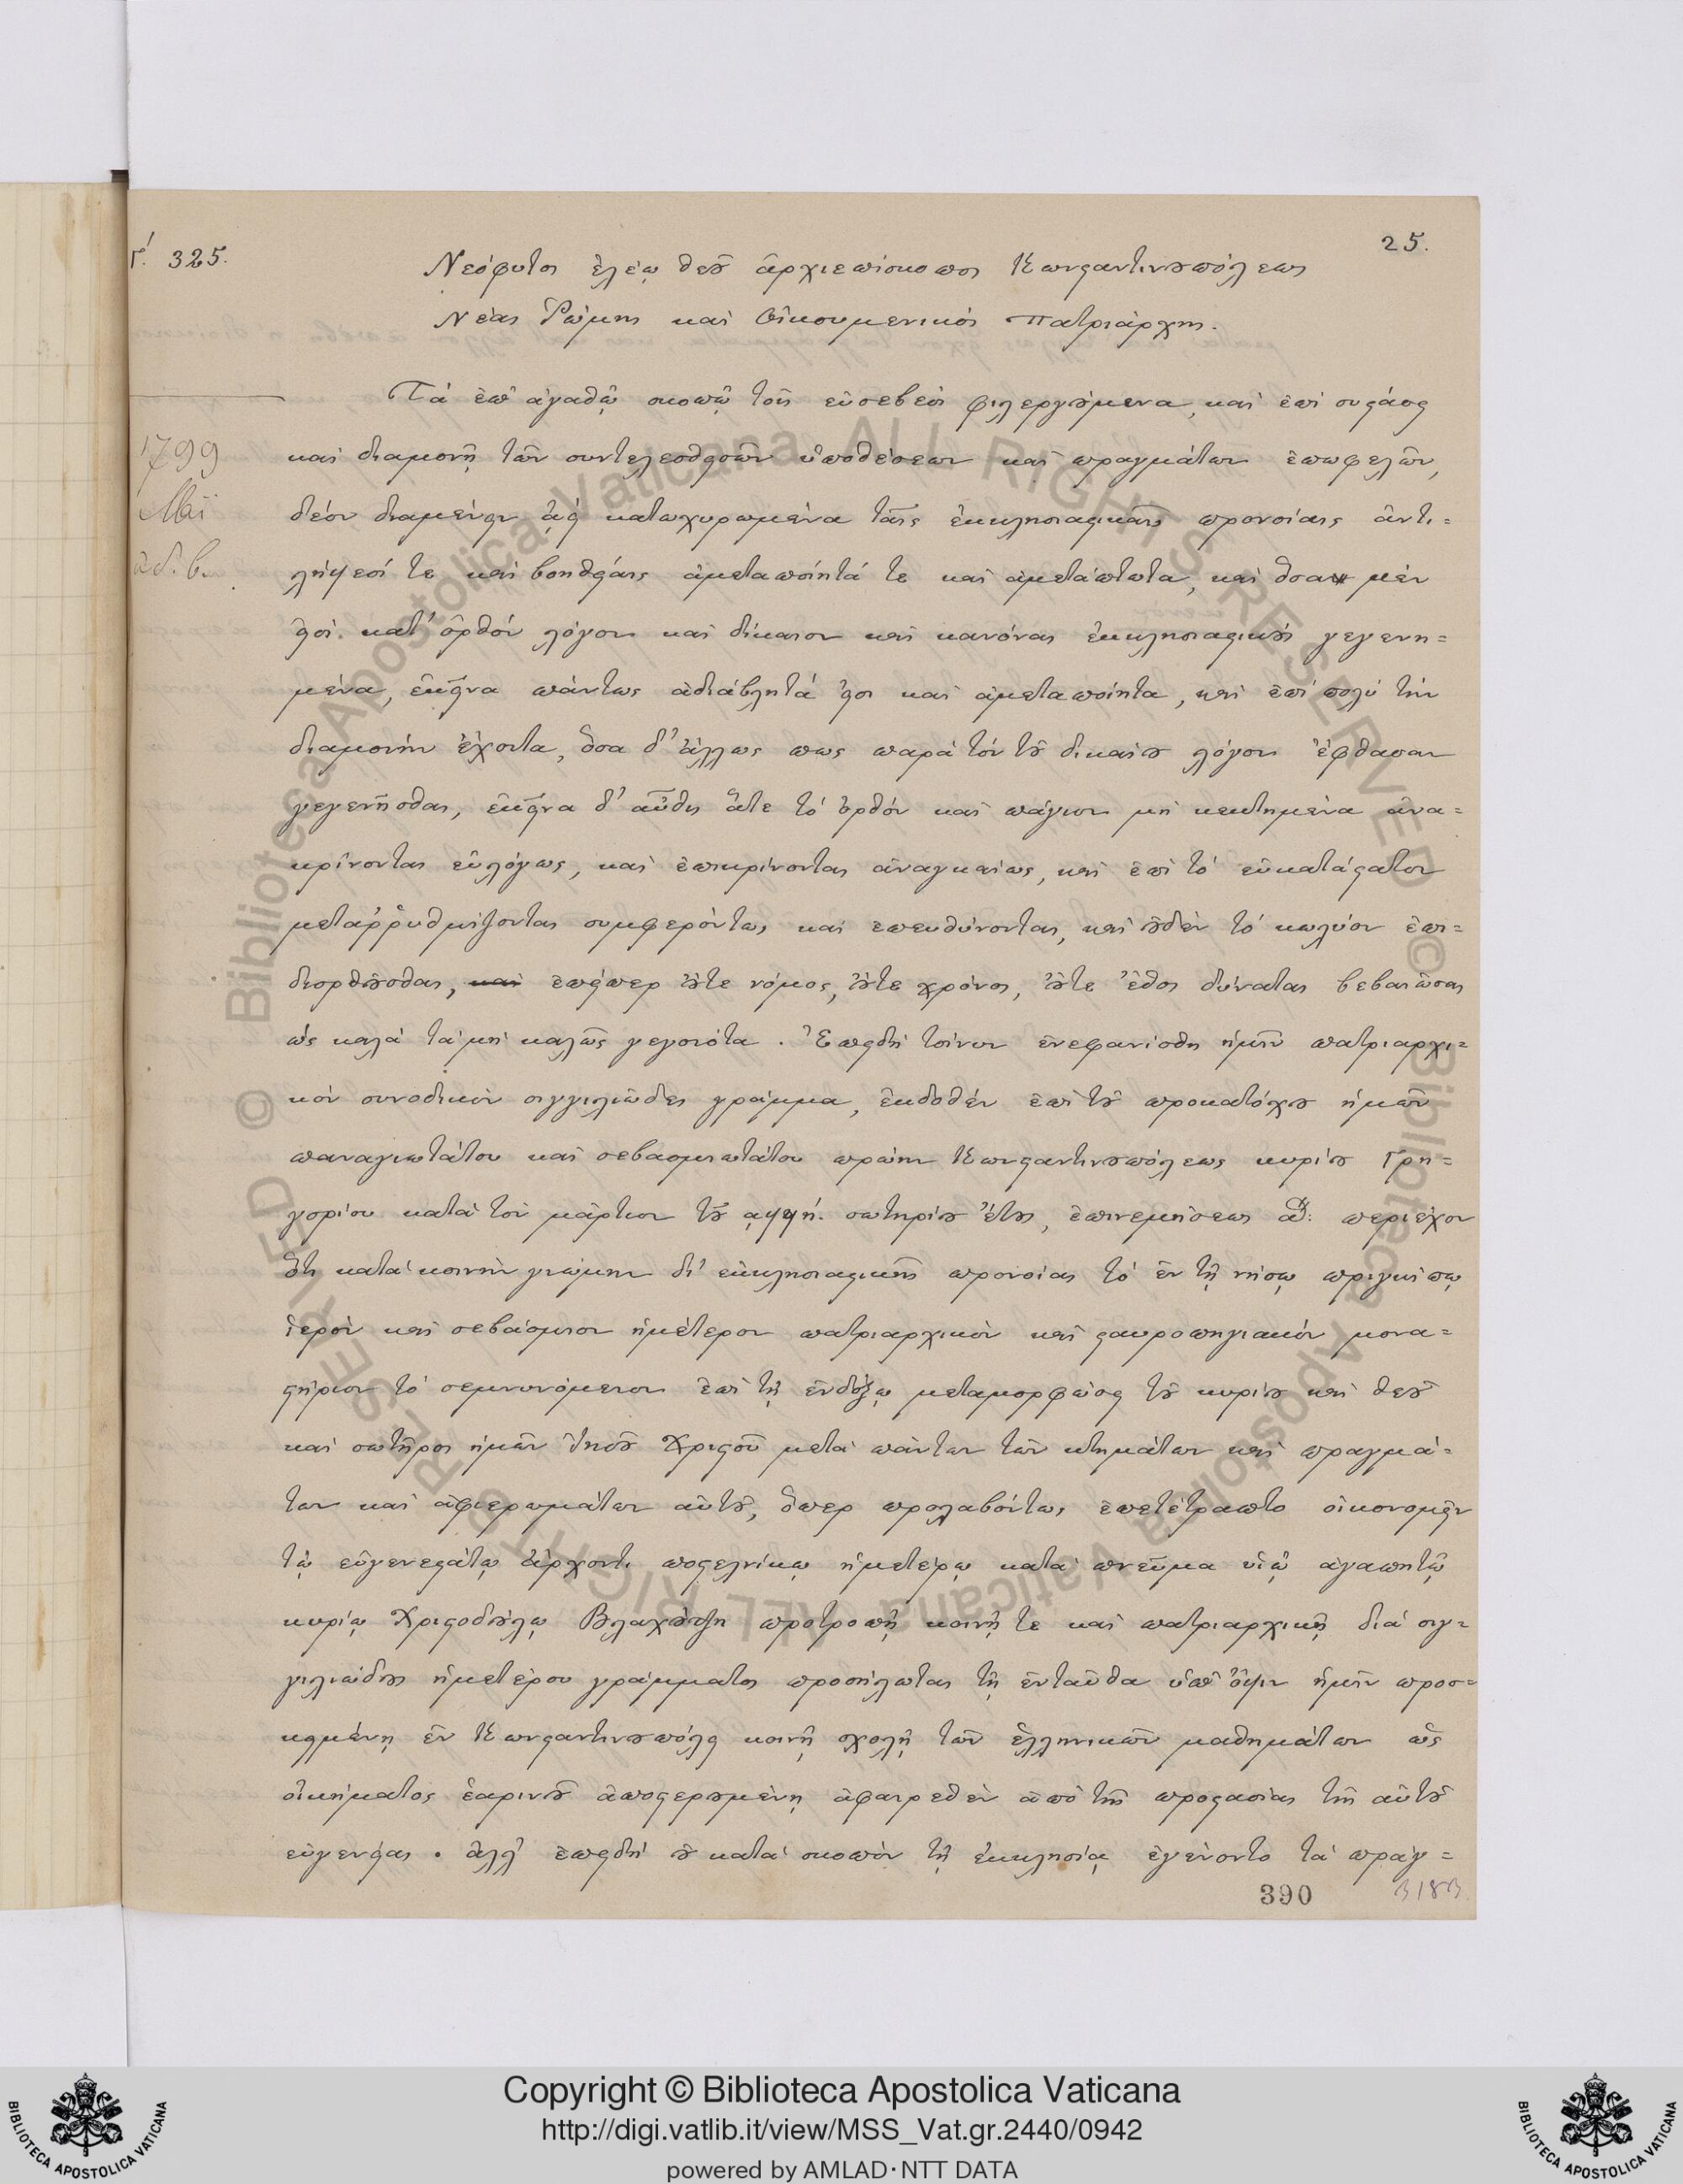 Γ΄. 325.
25.
Νεόφυτος ἐλέῳ θεοῦ ἀρχιεπίσκοπος Κωνσταντινουπόλεως
Νέας Ῥώμης καὶ Οἰκουμενικὸς Πατριάρχης.
Τὰ ἐπ' ἀγαθῷ σκοπῷ τοῖς εὐσεβέσι φιλεργούμενα, καὶ ἐπὶ συστάσει
1799
καὶ διαμονῇ τῶν συντελεσθεισῶν ὑποθέσεων καὶ πραγμάτων ἐπωφελῶν,
Μαΐ
δέον διαμένειν ἀεὶ κατωχυρωμένα ταῖς ἐκκλησιαστικαῖς προνοίαις ἀντι=
ἰνδ. β.
λήψεσί τε καὶ βοηθείαις ἀμεταποίητά τε καὶ ἀμετάπτωτα, καὶ ὅσα μὲν
εἰσὶ κατ' ὀρθὸν λόγον καὶ δίκαιον καὶ κανόνας ἐκκλησιαστικοὺς γεγενη=
μένα, ἐκεῖνα πάντως ἀδιάβλητά εἰσι καὶ ἀμεταποίητα, καὶ ἐπὶ πολὺ τὴν
διαμονὴν ἔχοντα, ὅσα δ' ἄλλως πως παρὰ τὸν τοῦ δικαίου λόγον ἔφθασαν
γεγενῆσθαι, ἐκεῖνα δ' αὖθις ἅτε τὸ ὀρθὸν καὶ πάγιον μὴ κεκτημένα ἀνα=
κρίνονται εὐλόγως, καὶ ἐπικρίνονται ἀναγκαίως, καὶ ἐπὶ τὸ εὐκατάστατον
μεταῤῥυθμίζονται συμφερόντως καὶ ἐπευθύνονται, καὶ οὐδὲν τὸ κωλύον ἐπι=
διορθοῦσθαι, και ἐπείπερ οὔτε νόμος, οὔτε χρόνος, οὔτε ἔθος δύναται βεβαιῶσαι
ὡς καλὰ τὰ μὴ καλῶς γεγονότα. Ἐπειδὴ τοίνυν ἐνεφανίσθη ἡμῖν πατριαρχι=
κὸν συνοδικὸν σιγγιλιῶδες γράμμα, ἐκδοθὲν ἐπὶ τοῦ προκατόχου ἡμῶν
παναγιωτάτου καὶ σεβασμιωτάτου πρώην Κωνσταντινουπόλεως κυρίου Γρη=
γορίου κατὰ τὸν μάρτιον τοῦ αψϟή. σωτηρίου ἔτους, ἐπινεμήσεως α΄: περιέχον
ὅτι κατὰ κοινὴν γνώμην δι' ἐκκλησιαστικῆς προνοίας τὸ ἐν τῇ νήσῳ πριγκίπῳ
ἱερὸν καὶ σεβάσμιον ἡμέτερον πατριαρχικὸν καὶ σταυροπηγιακὸν μονα=
στήριον τὸ σεμνυνόμενον ἐπὶ τῇ ἐνδόξῳ μεταμορφώσει τοῦ κυρίου καὶ θεοῦ
καὶ σωτῆρος ἡμῶν Ἰησοῦ Χριστοῦ μετὰ πάντων τῶν κτημάτων καὶ πραγμά=
των καὶ ἀφιερωμάτων αὐτοῦ, ὅπερ προλαβόντως ἐπετέτραπτο οἰκονομεῖν
τῷ εὐγενεστάτῳ ἄρχοντι ποστελνίκῳ ἡμετέρῳ κατὰ πνεῦμα υἱῷ ἀγαπητῷ
κυρίῳ Χριστοδούλῳ Βλαχούτζη προτροπῇ κοινῇ τε καὶ πατριαρχικῇ διὰ σιγ=
γιλιώδους ἡμετέρου γράμματος προσήλωται τῇ ἐνταῦθα ὑπ' ὄψιν ἡμῖν προσ=
κειμένῃ ἐν Κωνσταντινουπόλει κοινῇ σχολῇ τῶν ἑλληνικῶν μαθημάτων ὡς
οἰκήματος ἐαρινοῦ ἀποστερουμένῃ ἀφαιρεθὲν ἀπὸ τῆς προστασίας τῆς αὐτοῦ
εὐγενείας. ἀλλ' ἐπειδὴ οὐ κατὰ σκοπὸν τῇ ἐκκλησίᾳ ἐγένοντο τὰ πράγ=
390
Biblioteca Apostolica Vaticana ALL RIGHTS RESERVED ©
Copyright © Biblioteca Apostolica Vaticana
http://digi.vatlib.it/view/MSS_Vat.gr.2440/0942
powered by AMLAD·NTT DATA
BIBLIOTECA APOSTOLICA VATICANA
BIBLIOTECA APOSTOLICA VATICANA